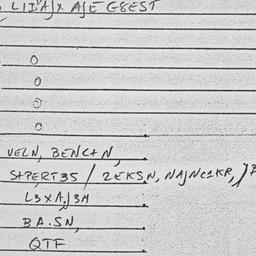 LIDAJX AJE G8EST
O
O
O
O
VELN, BENC+N,
S+PERT35 / 2EKS,N, NAJNC1KR,
L3XA,J3H
BA.SN,
QTF